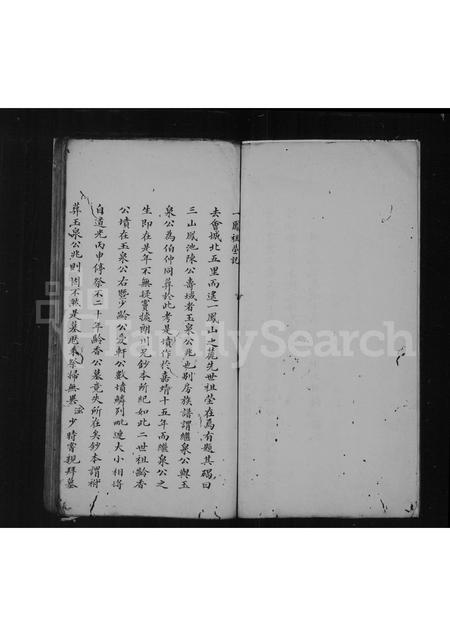 一鳳祖塋記
去會城北五里而遙一鳳山之麓先世祖塋在焉有題其碣曰
三山鳳池陳公壽域者玉泉公兆也別房族譜謂繼泉公與玉
泉公為伯仲同葬於此考是墳作於嘉靖十五年而繼泉公之
生即在是年不無疑竇據朗川兄鈔本所紀如此二世祖齡香
公墳在玉泉公右暨少齡公愛軒公數墳鱗列毗連大小相埒
自道光丙申停祭不二十年齡香公墓竟失所在矣鈔本謂祔
葬玉泉公兆則固不然是墓歷春祭掃無異 少時嘗親拜墓
FamilySearch